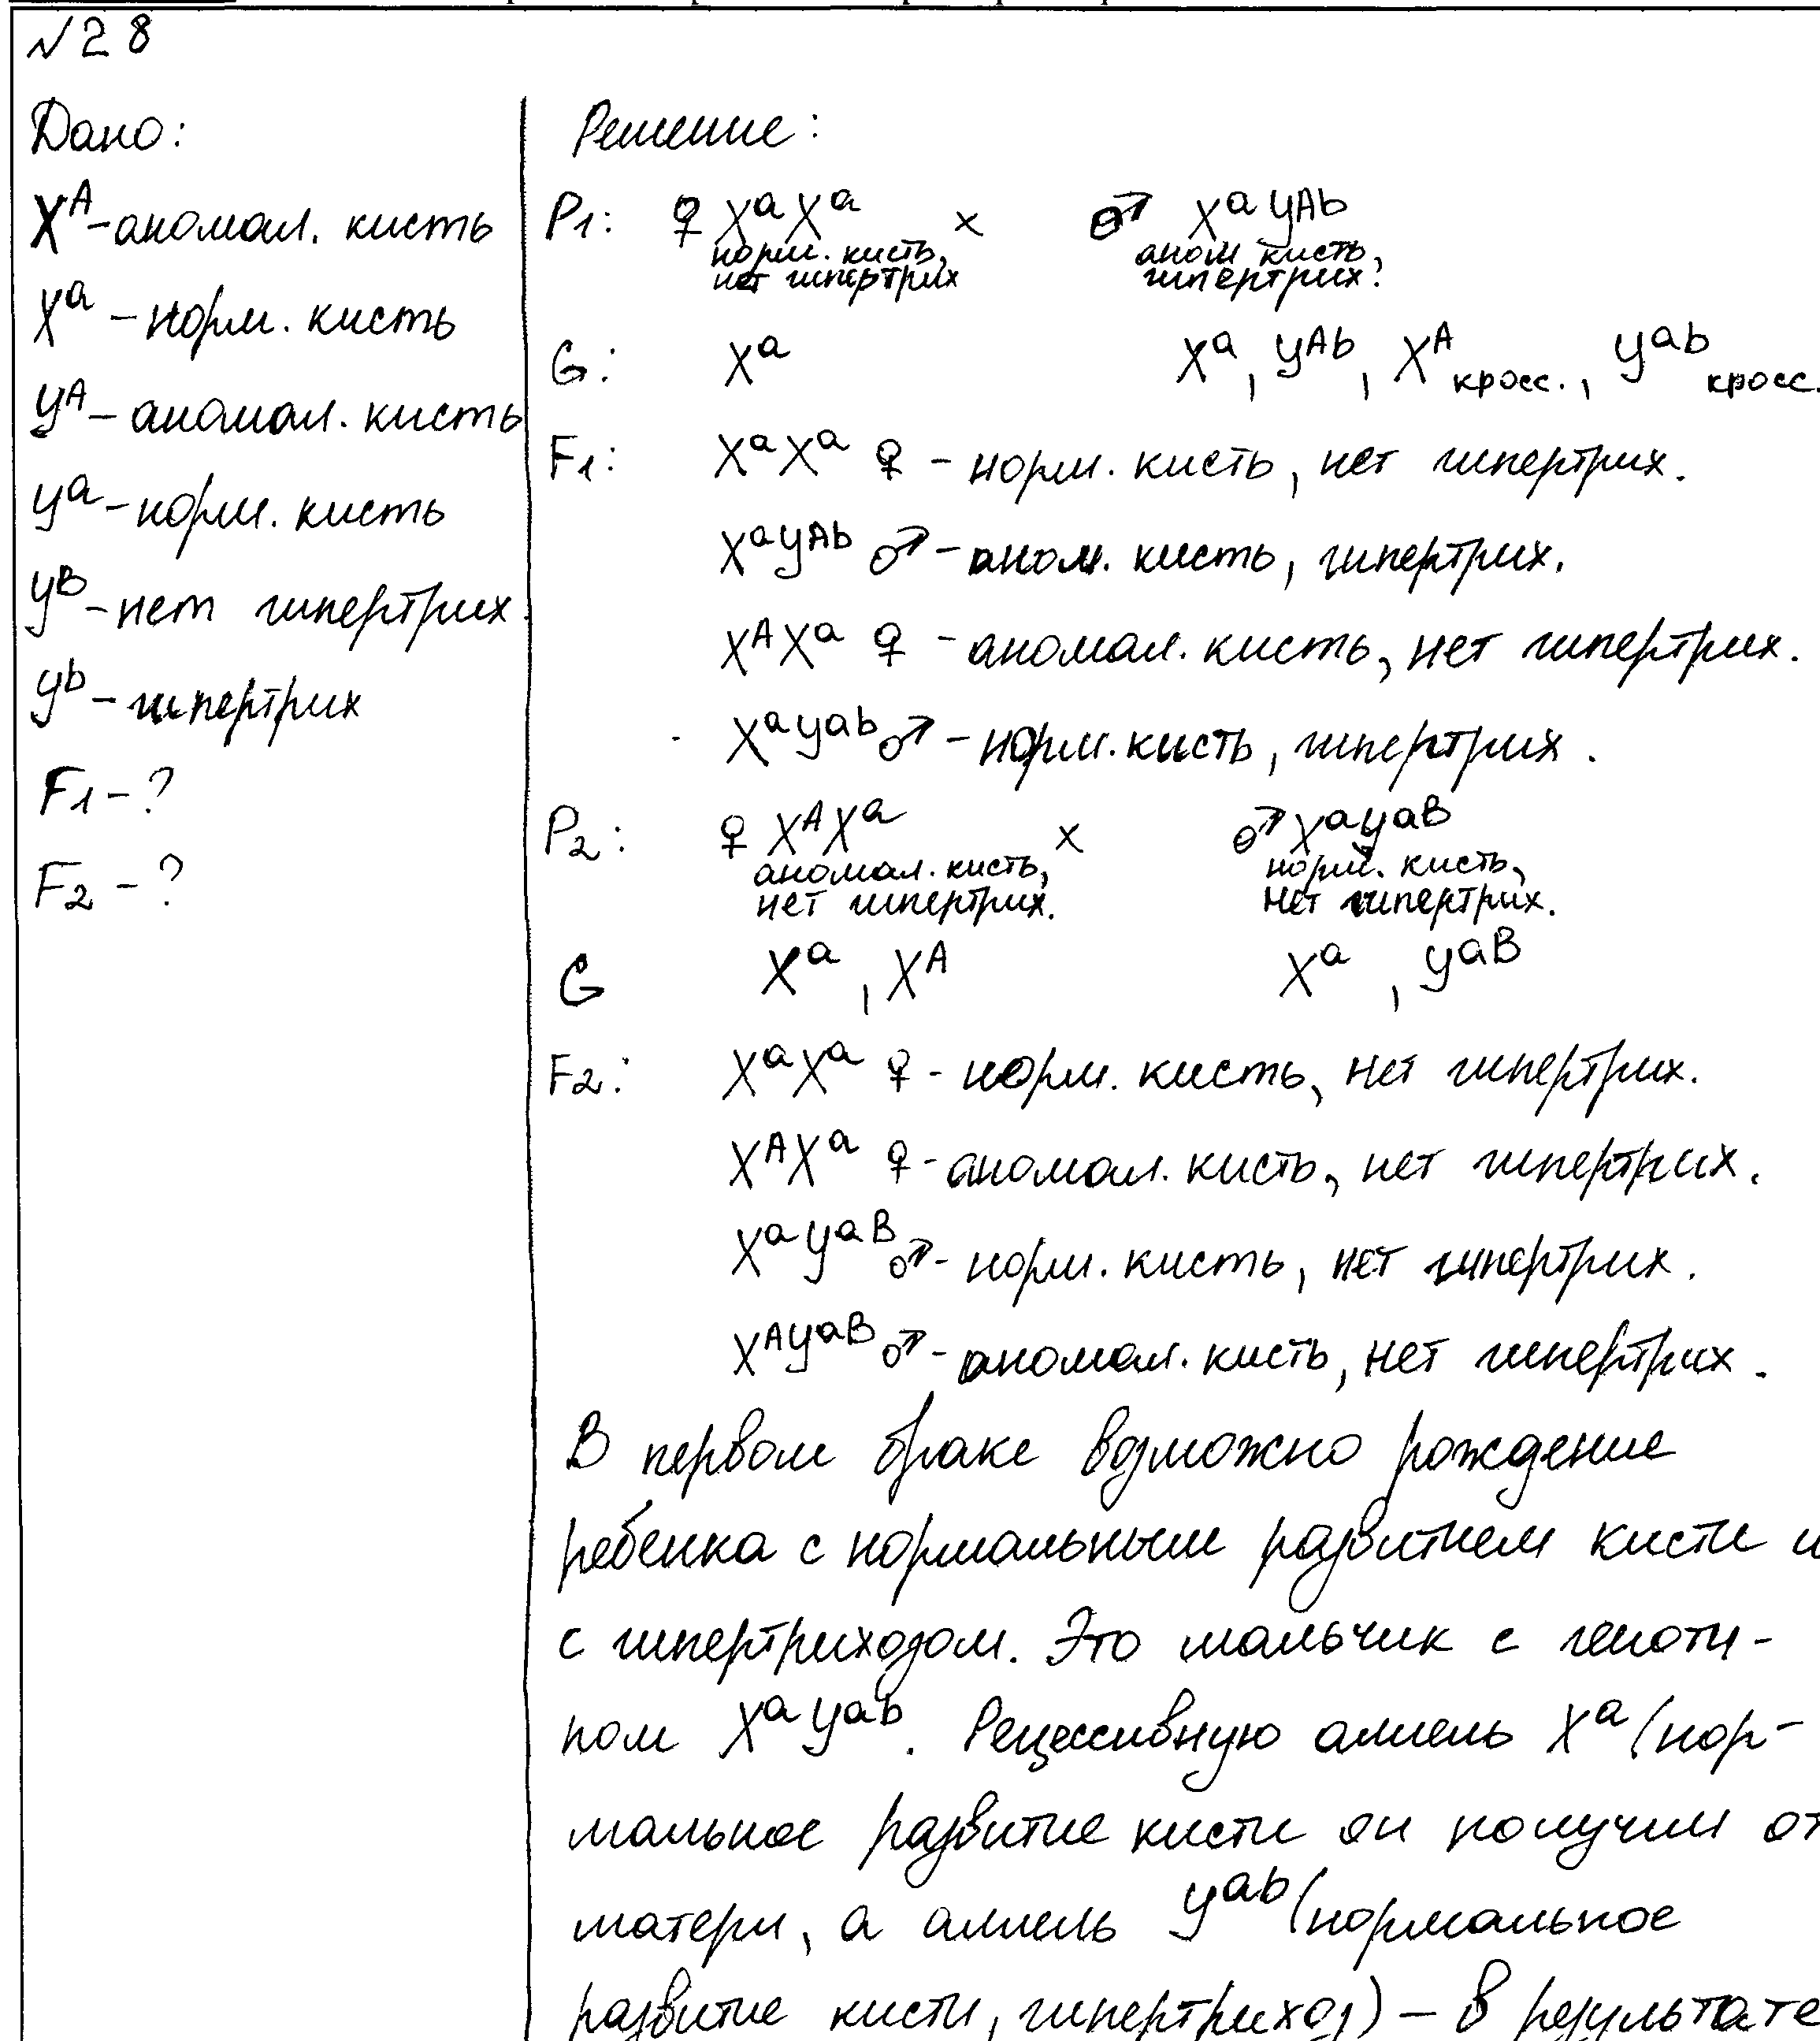 №28
Дано:
X^A - аномал. кисть
X^a - норм. кисть
У^A - аномал. кисть
У^a - норм. кисть
У^B - нет гипертрих.
У^b - гипертрих
F1 - ?
F2 - ?
Решение:
P1: ♀ X^aX^a × ♂ X^aУ^Ab
норм. кисть, аном кисть,
нет гипертрих гипертрих.
G: X^a X^a, У^Ab, X^A кросс., У^ab кросс.
F1: X^aX^a ♀ - норм. кисть, нет гипертрих.
X^aУ^Ab ♂ - аном. кисть, гипертрих.
X^AX^a ♀ - аномал. кисть, нет гипертрих.
X^aУ^ab ♂ - норм. кисть, гипертрих.
P2: ♀ X^AX^a × ♂ X^aУ^aB
аномал. кисть, норм. кисть,
нет гипертрих. нет гипертрих.
G X^a, X^A X^a, У^aB
F2: X^aX^a ♀ - норм. кисть, нет гипертрих.
X^AX^a ♀ - аномал. кисть, нет гипертрих.
X^aУ^aB ♂ - норм. кисть, нет гипертрих.
X^AУ^aB ♂ - аномал. кисть, нет гипертрих.
В первом браке возможно рождение
ребенка с нормальным развитием кисти и
с гипертрихозом. Это мальчик с геноти-
пом X^aУ^ab. Рецессивную аллель X^a (нор-
мальное развитие кисти он получил от
матери, а аллель У^ab (нормальное
развитие кисти, гипертрихоз) - в результате